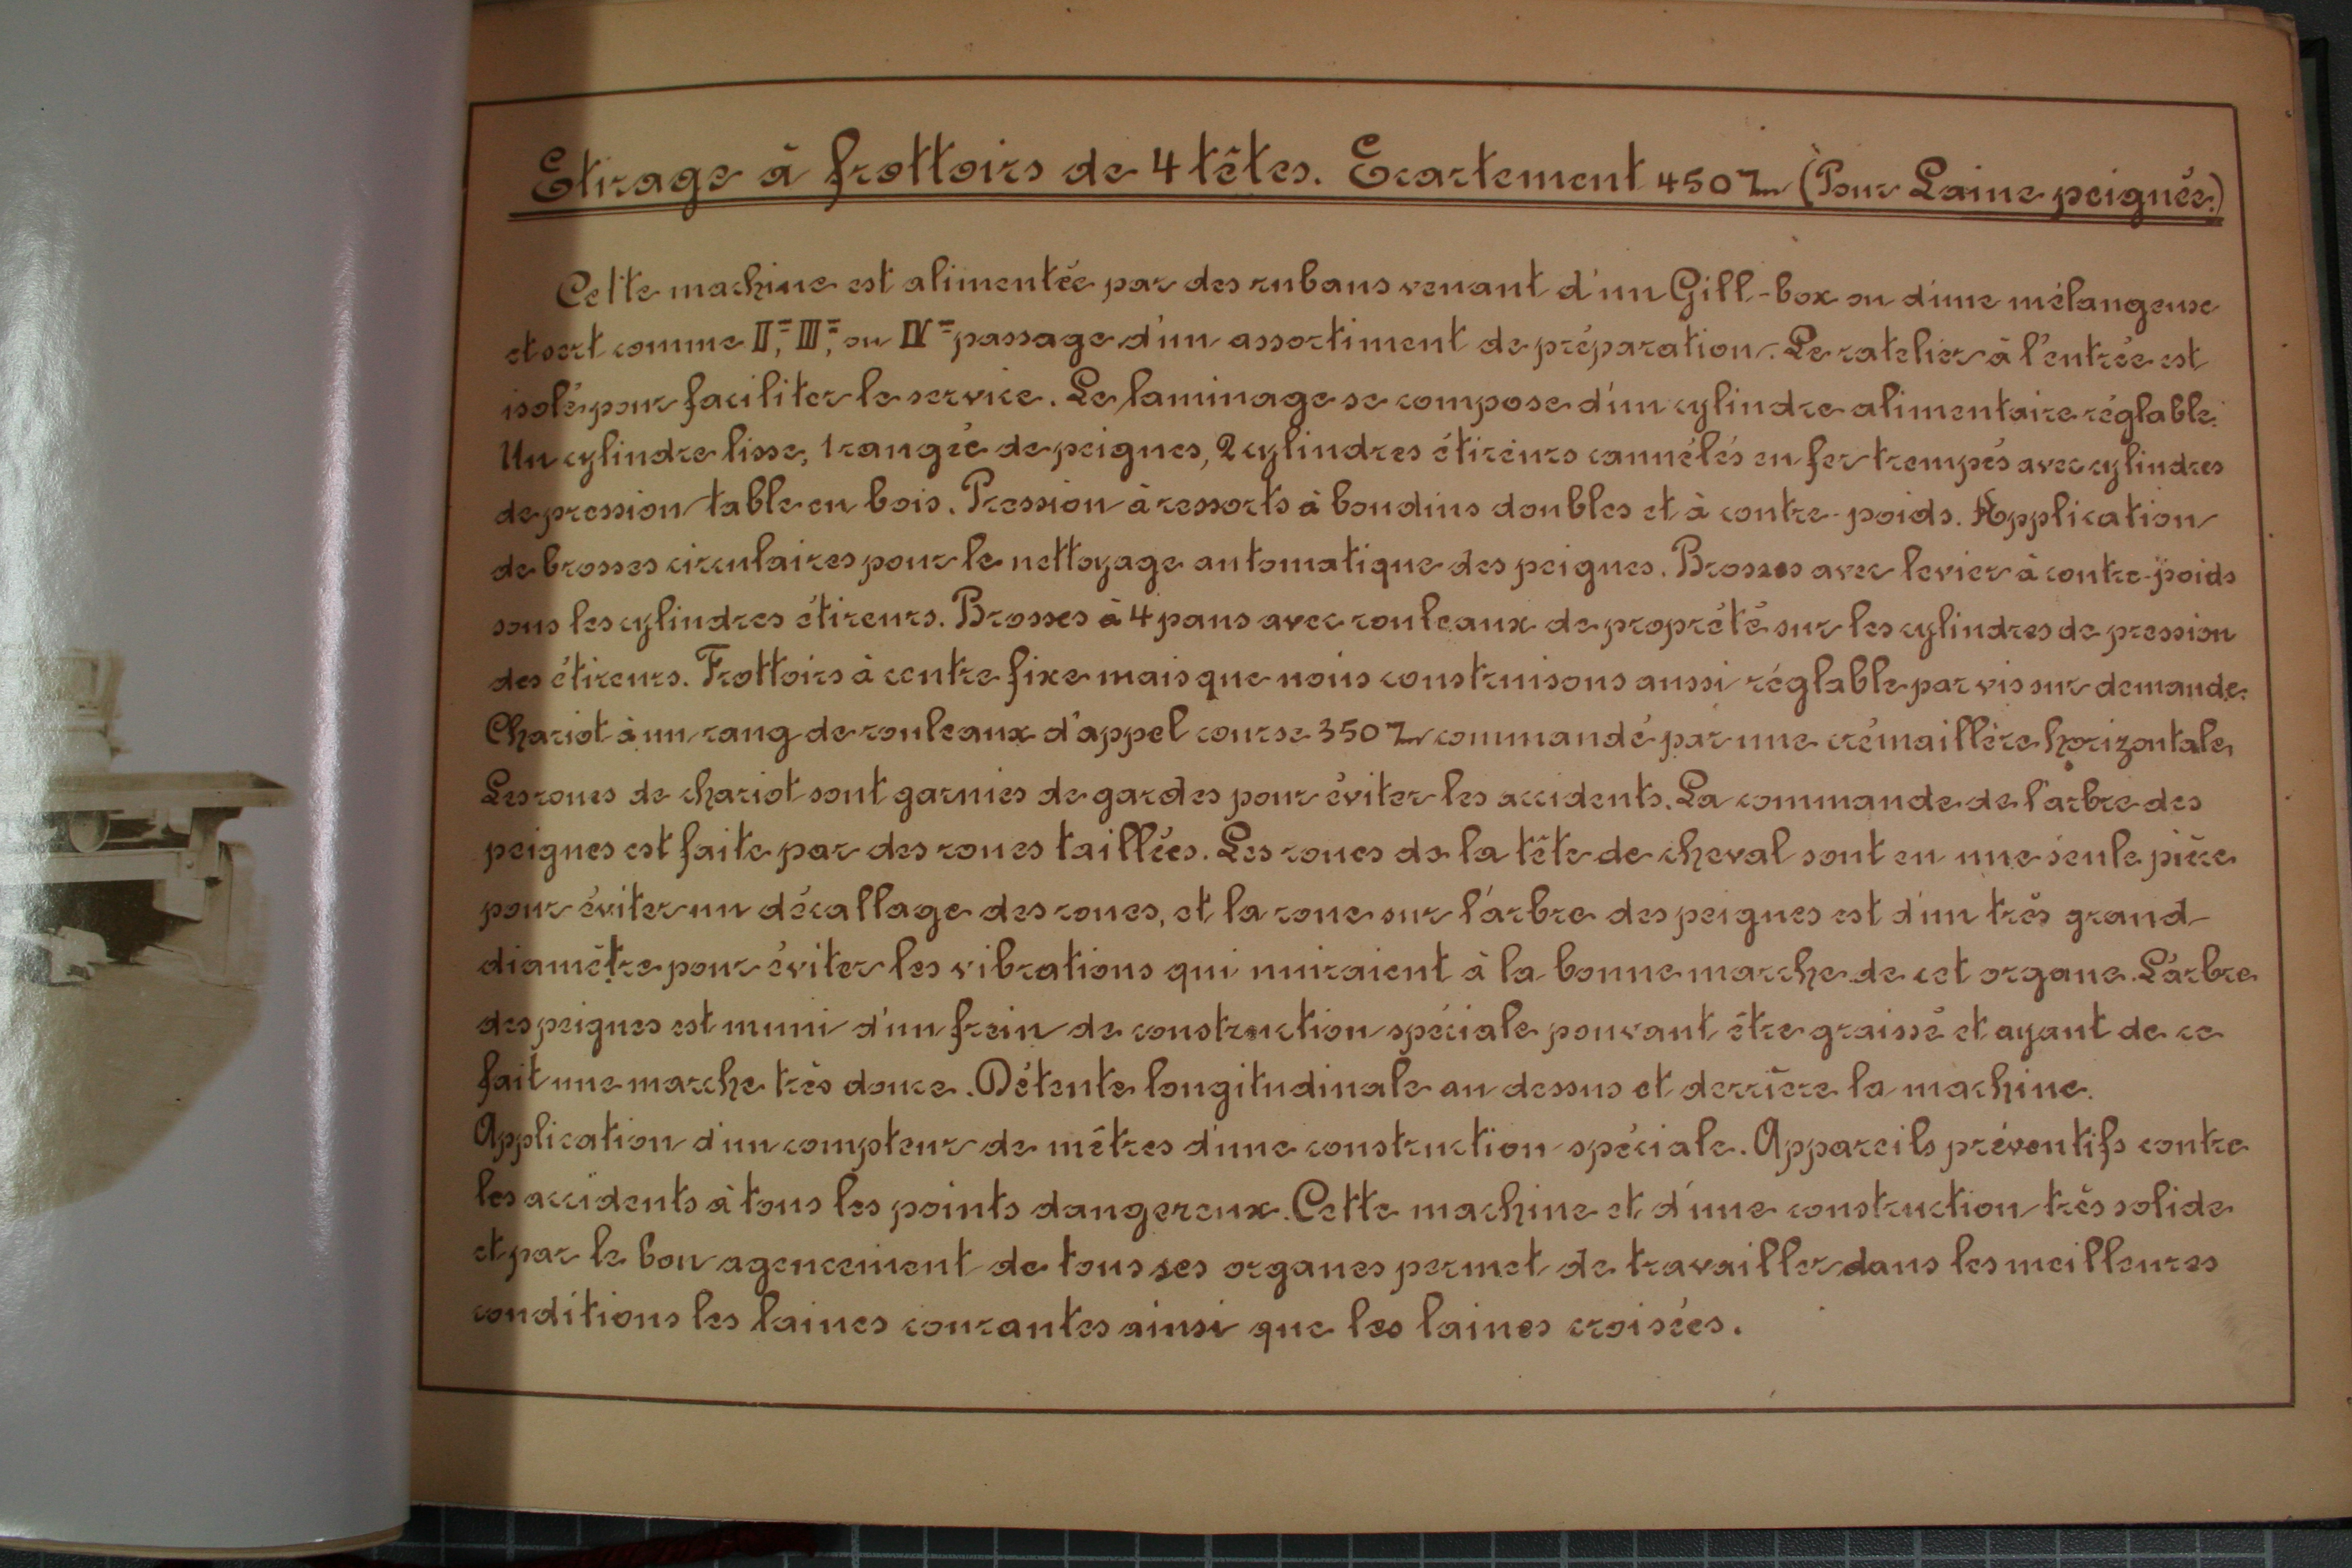 Etirage à frottoirs de 4 têtes. Ecartement 450 m/m (Pour Laine peignée.)
Cette machine est alimentée par des rubans venant d'un Gill-box ou d'une mélangeuse
et sert comme II=, III=, ou IV= passage d'un assortiment de préparation. Le ratelier à l'entrée est
isolé pour faciliter le service. Le laminage se compose d'un cylindre alimentaire réglable.
Un cylindre lisse, 1 rangée de peignes, 2 cylindres étireurs cannélés en fer trempés avec cylindres
de pression table en bois. Pression à ressorts à boudins doubles et à contre-poids. Application
de brosses circulaires pour le nettoyage automatique des peignes. Brosses avec levier à contre-poids
sous les cylindres étireurs. Brosses à 4 pans avec rouleaux de propreté sur les cylindres de pression
des étireurs. Frottoirs à centre fixe mais que nous construisons aussi réglable par vis sur demande.
Chariot à un rang de rouleaux d'appel course 350 m/m commandé par une crémaillère horizontale.
Les roues de chariot sont garnies de gardes pour éviter les accidents. La commande de l'arbre des
peignes est faite par des roues taillées. Les roues de la tête de cheval sont en une seule pièce
pour éviter un décallage des roues, et la roue sur l'arbre des peignes est d'un très grand
diamètre pour éviter les vibrations qui nuiraient à la bonne marche de cet organe. L'arbre
des peignes est muni d'un frein de construction spéciale pouvant être graissé et ayant de ce
fait une marche très douce. Détente longitudinale au dessus et derrière la machine.
Application d'un compteur de mètres d'une construction spéciale. Appareils préventifs contre
les accidents à tous les points dangereux. Cette machine et d'une construction très solide
et par le bon agencement de tous ses organes permet de travailler dans les meilleures
conditions les laines courantes ainsi que les laines croisées.